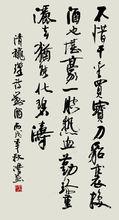 不惜千金買寶刀貂裘換
酒也堪豪一腔熱血勤珍重
灑去猶能化碧濤
清秋瑾詩丙戌年秋